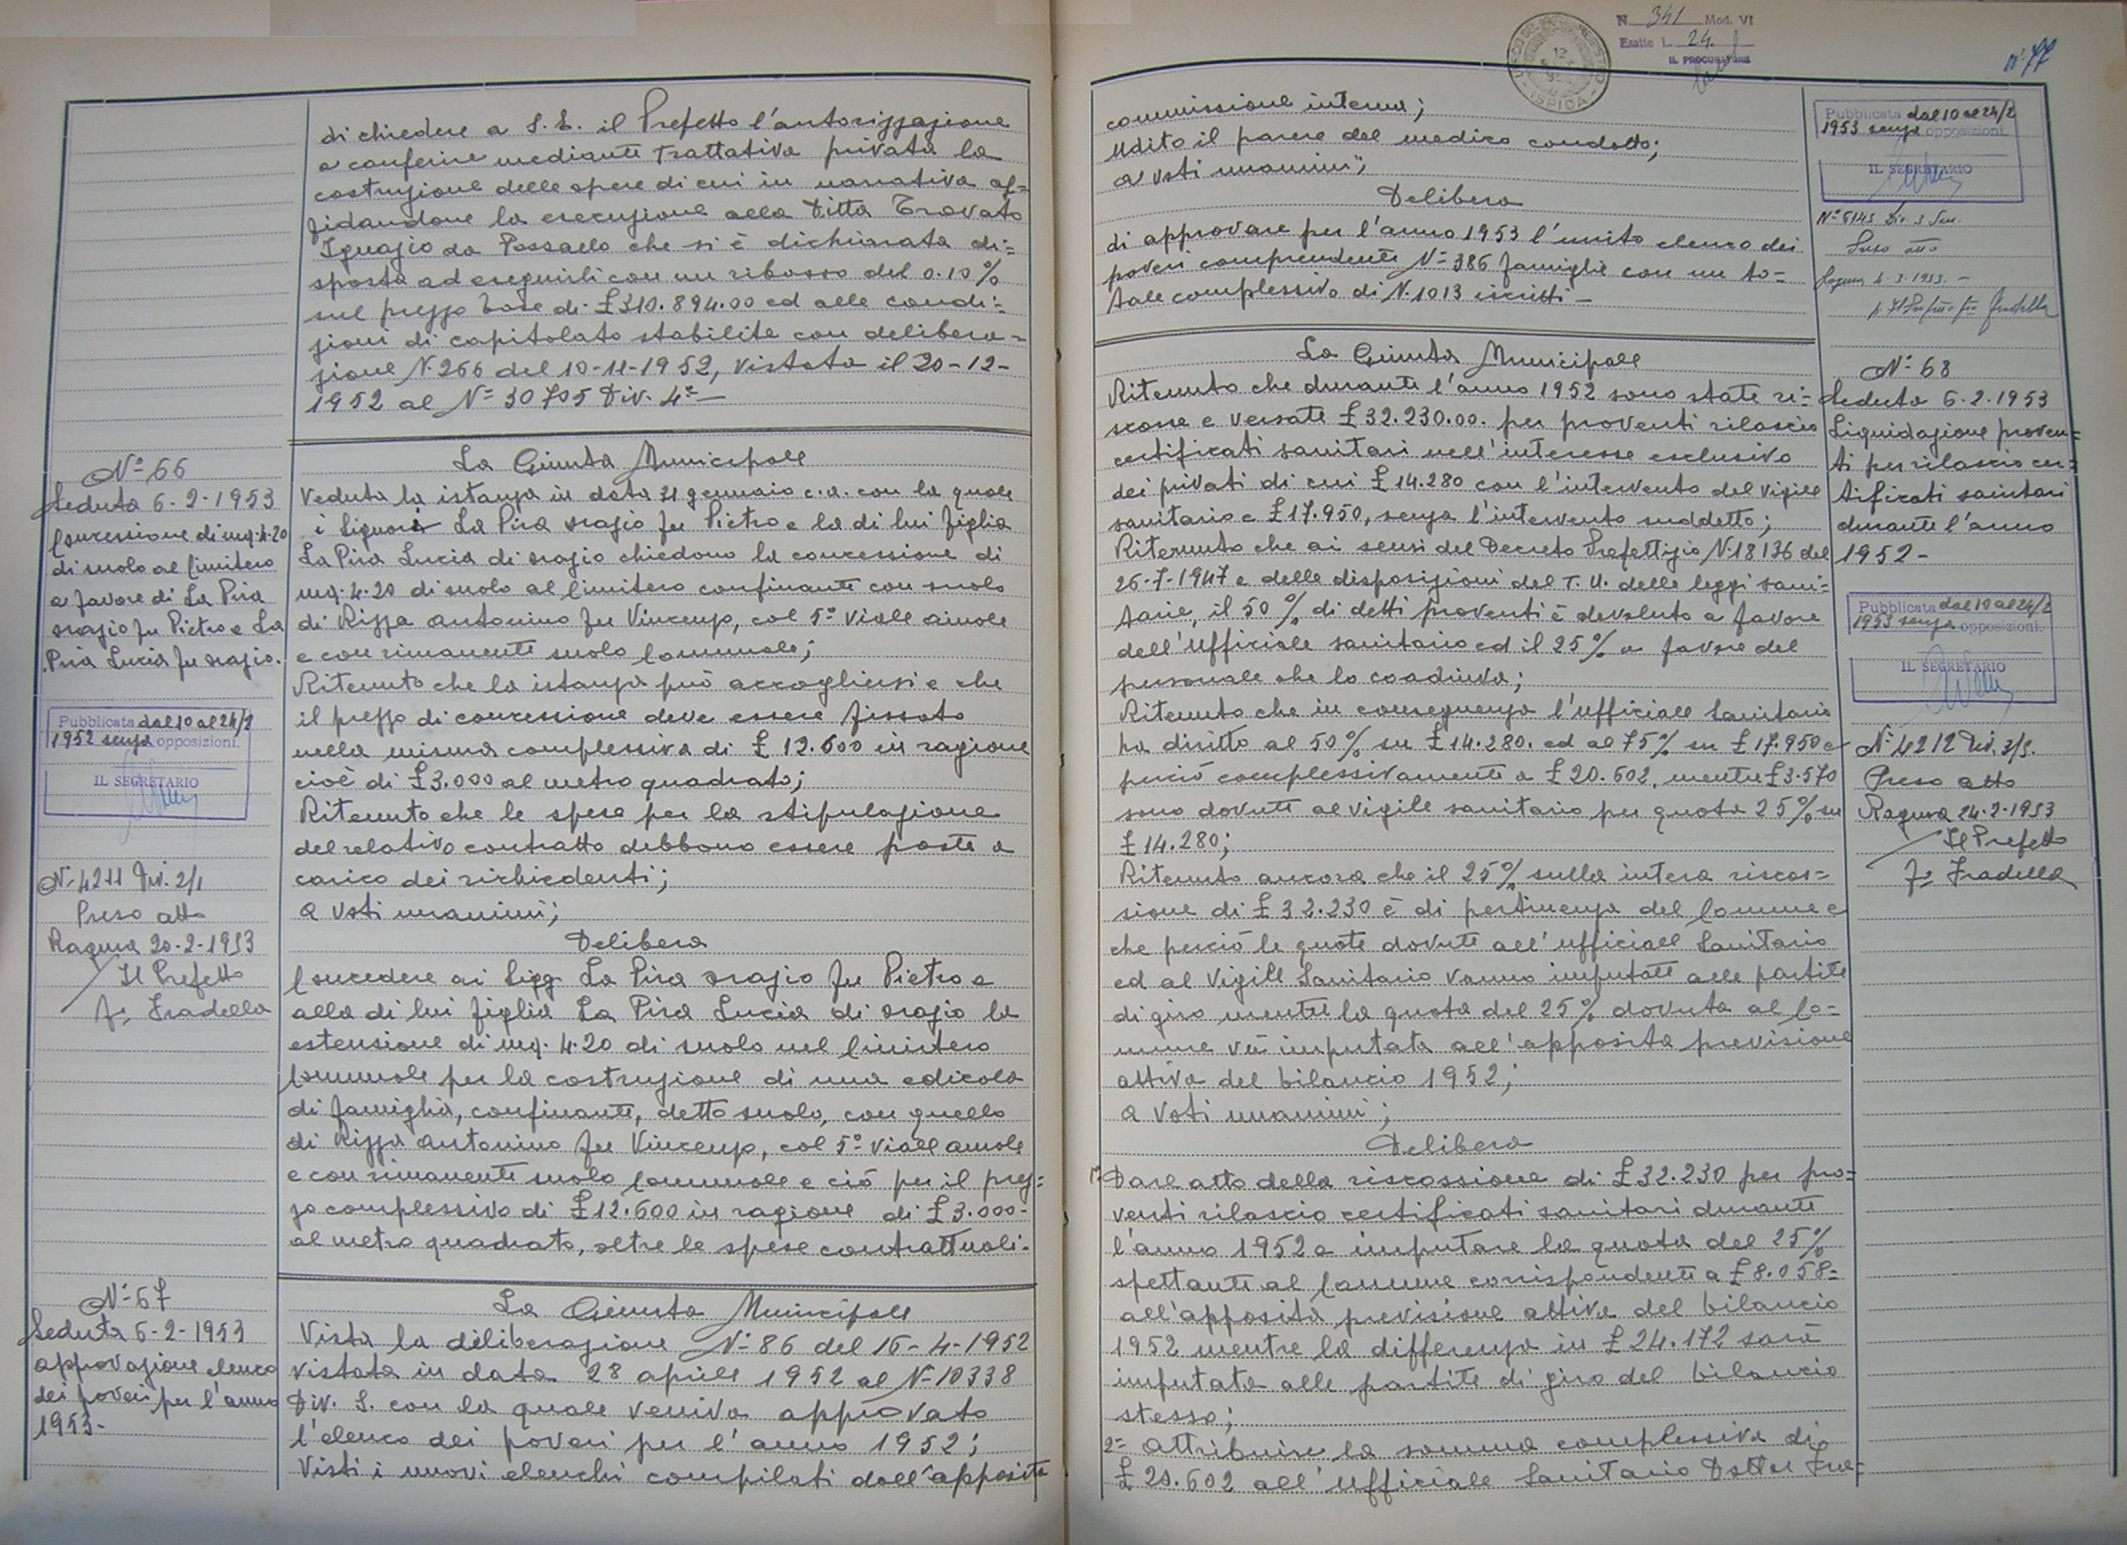 di chiedere a S. E. il Prefetto l'autorizzazione
a conferire mediante trattativa privata la
costruzione delle opere di cui in narrativa af=
fidandone la esecuzione alla Ditta Trovato
Ignazio da Possallo che si è dichiarata di=
sposta ad eseguirli con un ribasso del 0.10%
sul prezzo base di £310.894.00 ed alle condi=
zioni di capitolato stabilite con delibera=
zione N. 266 del 10-11-1952, vistata il 20-12-
1952 al N= 30705 Div. 4ª—
N= 66
Seduta 6-2-1953
Concessione di mq. 4.20
di suolo al Cimitero
a favore di La Pira
Orazio fu Pietro e La
Pira Lucia fu Orazio.
Pubblicata dal 10 al 24/2
1952 senza opposizioni.
IL SEGRETARIO
N= 4211 Div. 2/1
Preso atto
Ragusa 20-2-1953
Il Prefetto
F= Fradella
La Giunta Municipale
Veduta la istanza in data 21 gennaio c.a. con la quale
i Signori La Pira Orazio fu Pietro e la di lui figlia
La Pira Lucia di Orazio chiedono la concessione di
mq. 4.20 di suolo al Cimitero confinante con suolo
di Rizza Antonino fu Vincenzo, col 5° viale aiuole
e con rimanente suolo Comunale;
Ritenuto che la istanza può accogliersi e che
il prezzo di concessione deve essere fissato
nella misura complessiva di £ 12.600 in ragione
cioè di £3.000 al metro quadrato;
Ritenuto che le spese per la stipulazione
del relativo contratto debbono essere poste a
carico dei richiedenti;
a voti unanimi;
Delibera
Concedere ai Sigg. La Pira Orazio fu Pietro e
alla di lui figlia La Pira Lucia di Orazio la
estensione di mq. 4.20 di suolo nel Cimitero
Comunale per la costruzione di una edicola
di famiglia, confinante, detto suolo, con quello
di Rizza Antonino fu Vincenzo, col 5° viale aiuole
e con rimanente suolo Comunale e ciò per il prez=
zo complessivo di £12.600 in ragione di £3.000-
al metro quadrato, oltre le spese contrattuali.
N= 67
Seduta 6-2-1953
approvazione elenco
dei poveri per l'anno
1953-
La Giunta Municipale
Vista la deliberazione N= 86 del 16-4-1952
vistata in data 28 aprile 1952 al N= 10338
Div. S. con la quale veniva approvato
l'elenco dei poveri per l'anno 1952;
Visti i nuovi elenchi compilati dall'apposita
N 341 Mod. VI
Esatte L. 24.
IL PROCURATORE
ISPICA
n: 77
commissione interna;
Udito il parere del medico condotto;
a voti unanimi;
Delibera
di approvare per l'anno 1953 l'unito elenco dei
poveri comprendente N= 386 famiglie con un to=
tale complessivo di N. 1013 iscritti—
Pubblicata dal 10 al 24/2
1953 senza opposizioni.
IL SEGRETARIO
N= 6145 Div. 3 San.
Preso atto
Ragusa 4-3-1953.-
p. Il Prefetto f= Fradella
La Giunta Municipale
Ritenuto che durante l'anno 1952 sono state ri=
scosse e versate £32.230.00. per proventi rilascio
certificati sanitari nell'interesse esclusivo
dei privati di cui £14.280 con l'intervento del vigile
sanitario e £17.950, senza l'intervento suddetto;
Ritenuto che ai sensi del Decreto Prefettizio N. 18136 del
26-7-1947 e delle disposizioni del T. U. delle leggi sani=
tarie, il 50% di detti proventi è devoluto a favore
dell'Ufficiale sanitario ed il 25% a favore del
personale che lo coadiuva;
Ritenuto che in conseguenza l'Ufficiale Sanitario
ha diritto al 50% su £14.280. ed al 75% su £17.950 e
perciò complessivamente a £20.602, mentre £3.570
sono dovute al vigile sanitario per quota 25% su
£14.280;
Ritenuto ancora che il 25% sulla intera riscos=
sione di £32.230 è di pertinenza del Comune e
che perciò le quote dovute all'ufficiale Sanitario
ed al Vigile Sanitario vanno imputate alle partite
di giro mentre la quota del 25% dovuta al Co=
mune va imputata all'apposita previsione
attiva del bilancio 1952;
a voti unanimi;
Delibera
1° Dare atto della riscossione di £32.230 per pro=
venti rilascio certificati sanitari durante
l'anno 1952 e imputare la quota del 25%
spettante al Comune corrispondente a £8.058=
all'apposita previsione attiva del bilancio
1952 mentre la differenza in £24.172 sarà
imputata alle partite di giro del bilancio
stesso;
2= attribuire la somma complessiva di
£20.602 all'Ufficiale Sanitario Dottor
N= 68
Seduta 6.2.1953
Liquidazione proven=
ti per rilascio cer=
tificati sanitari
durante l'anno
1952-
Pubblicata dal 10 al 24/2
1953 senza opposizioni.
IL SEGRETARIO
N= 4212 Div. 3/S.
Preso atto
Ragusa 24-2-1953
Il Prefetto
F= Fradella